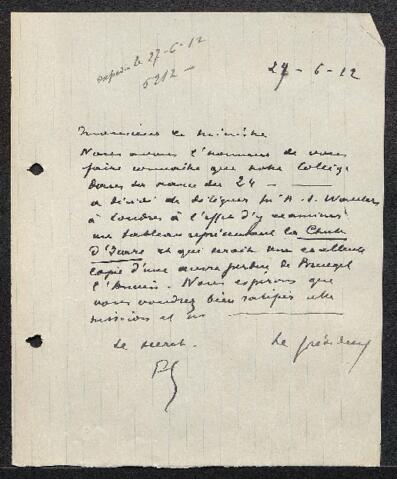 expédié le 27-6-12
5212 —
27 - 6 - 12
Monsieur le Ministre
Nous avons l'honneur de vous
faire connaître que notre Collège
dans sa séance du 24 —
a décidé de déléguer Mr A. J. Wauters
à Londres à l'effet d'y examiner
un tableau représentant la Chute
d'Icare et qui serait une excellente
copie d'une œuvre perdue de Bruegel
l'Ancien. Nous espérons que
vous voudrez bien ratifier cette
mission et
Le secret. Le président